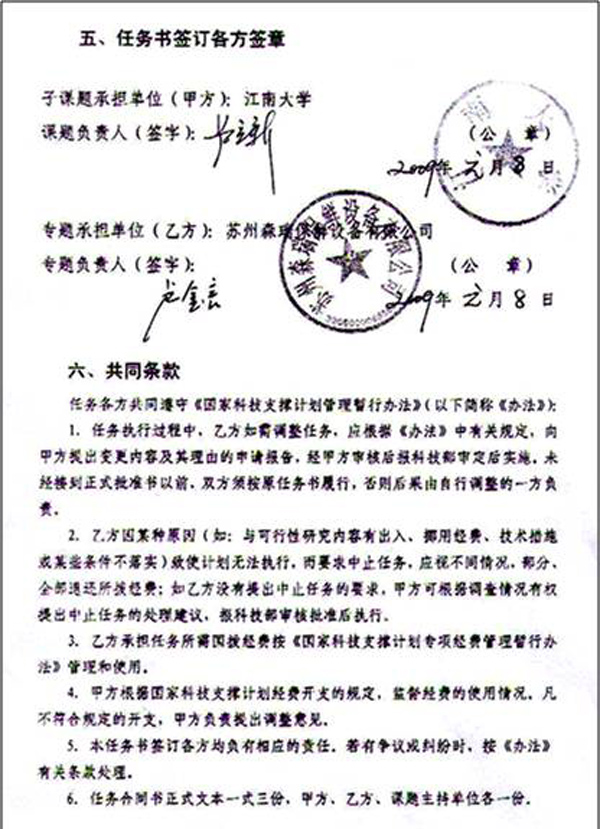 五、任务书签订各方签章
子课题承担单位（甲方）：江南大学
课题负责人（签字）：
（公 章）
2009年 元月 8 日
专题承担单位（乙方）：苏州森瑞保鲜设备有限公司
专题负责人（签字）：
（公 章）
2009年 元月 8 日
苏州森瑞保鲜设备有限公司
六、共同条款
任务各方共同遵守《国家科技支撑计划管理暂行办法》（以下简称《办法》）：
1．任务执行过程中，乙方如需调整任务，应根据《办法》中有关规定，向
甲方提出变更内容及其理由的申请报告，经甲方审核后报科技部审定后实施。未
经接到正式批准书以前，双方须按原任务书履行，否则后果由自行调整的一方负
责。
2．乙方因某种原因（如：与可行性研究内容有出入、挪用经费、技术措施
或某些条件不落实）致使计划无法执行，而要求中止任务，应视不同情况，部分、
全部退还所拨经费；如乙方没有提出中止任务的要求，甲方可根据调查情况有权
提出中止任务的处理建议，报科技部审核批准后执行。
3．乙方承担任务所需国拨经费按《国家科技支撑计划专项经费管理暂行办
法》管理和使用。
4．甲方根据国家科技支撑计划经费开支的规定，监督经费的使用情况。凡
不符合规定的开支，甲方负责提出调整意见。
5．本任务书签订各方均负有相应的责任。若有争议或纠纷时，按《办法》
有关条款处理。
6．任务合同书正式文本一式三份，甲方、乙方、课题主持单位各一份。